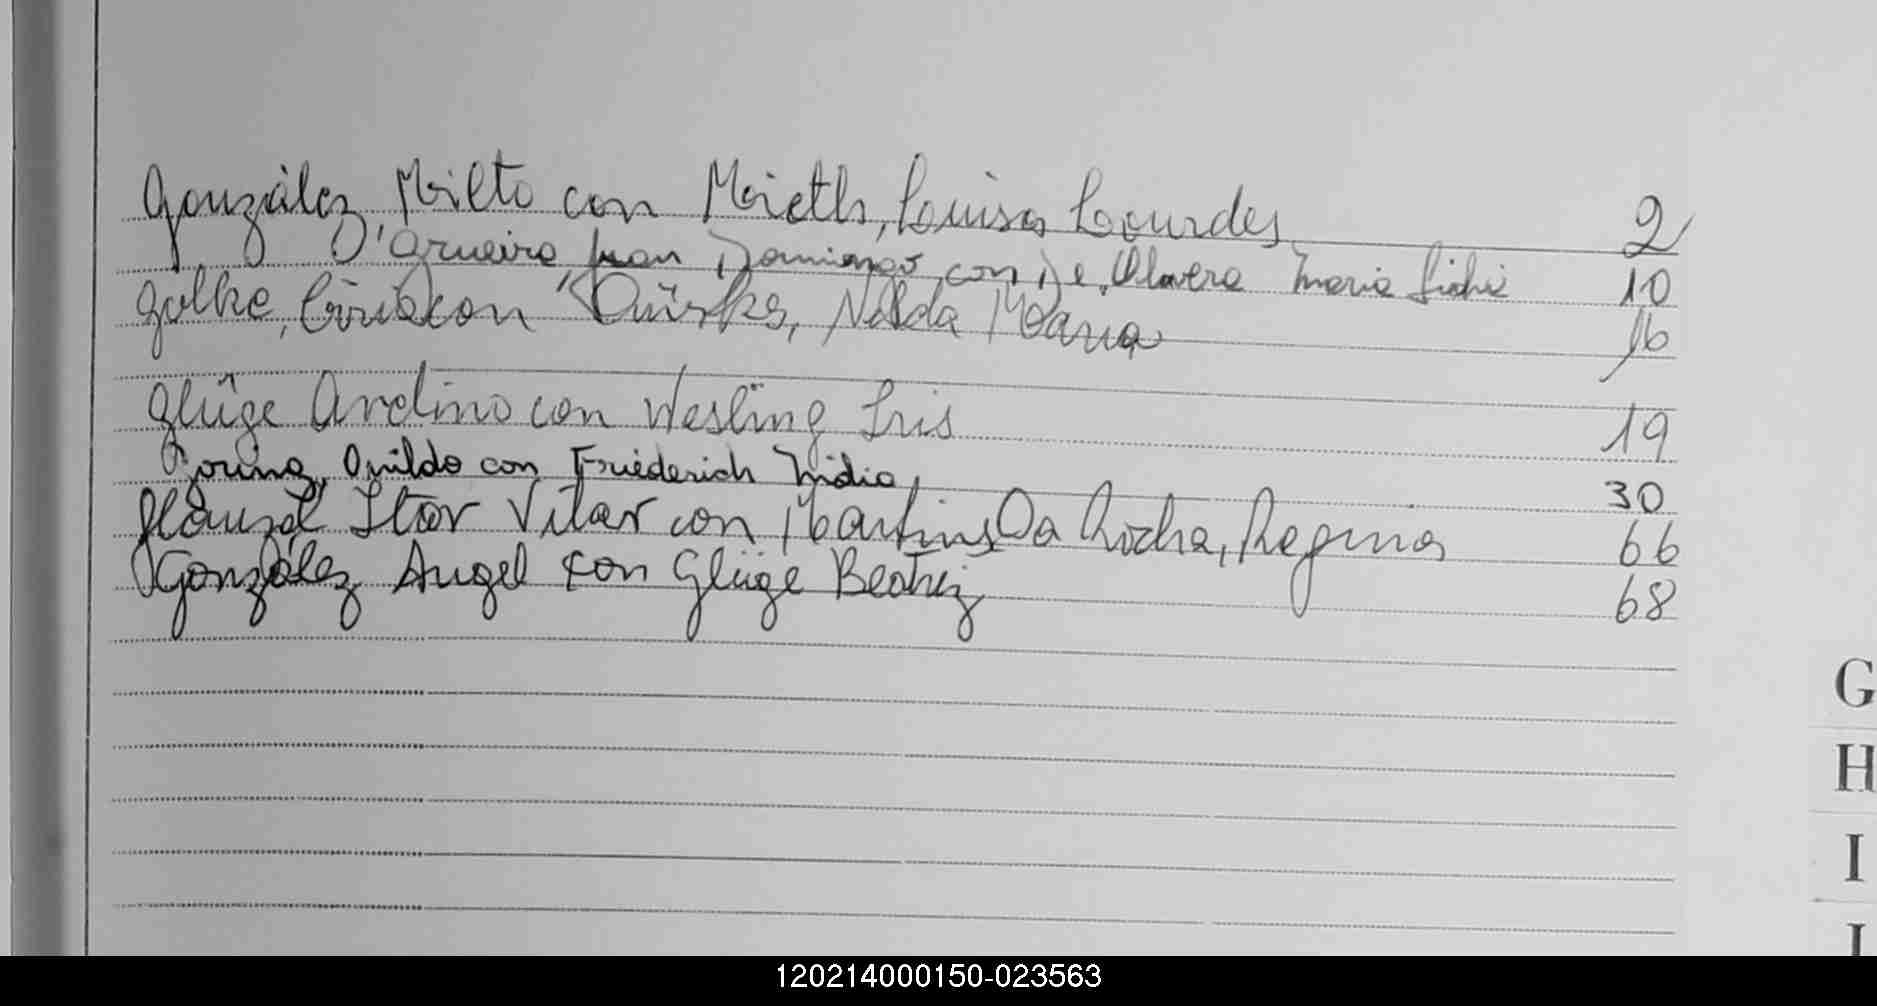 González Milto con Mrieth, Luisa Lourdes 2
D'Arrueira, Juan Domingo con De Olivera Maria 10
Golke, con Nilda Maria 16
Glüge Arelino con Wesling Iris 19
Goring, Onildo con Friederich Nidia 30
Itar Vilar con Martins Da Rocha, Regina 66
González Angel con Glüge Beatriz 68
G
H
I
J
120214000150-023563